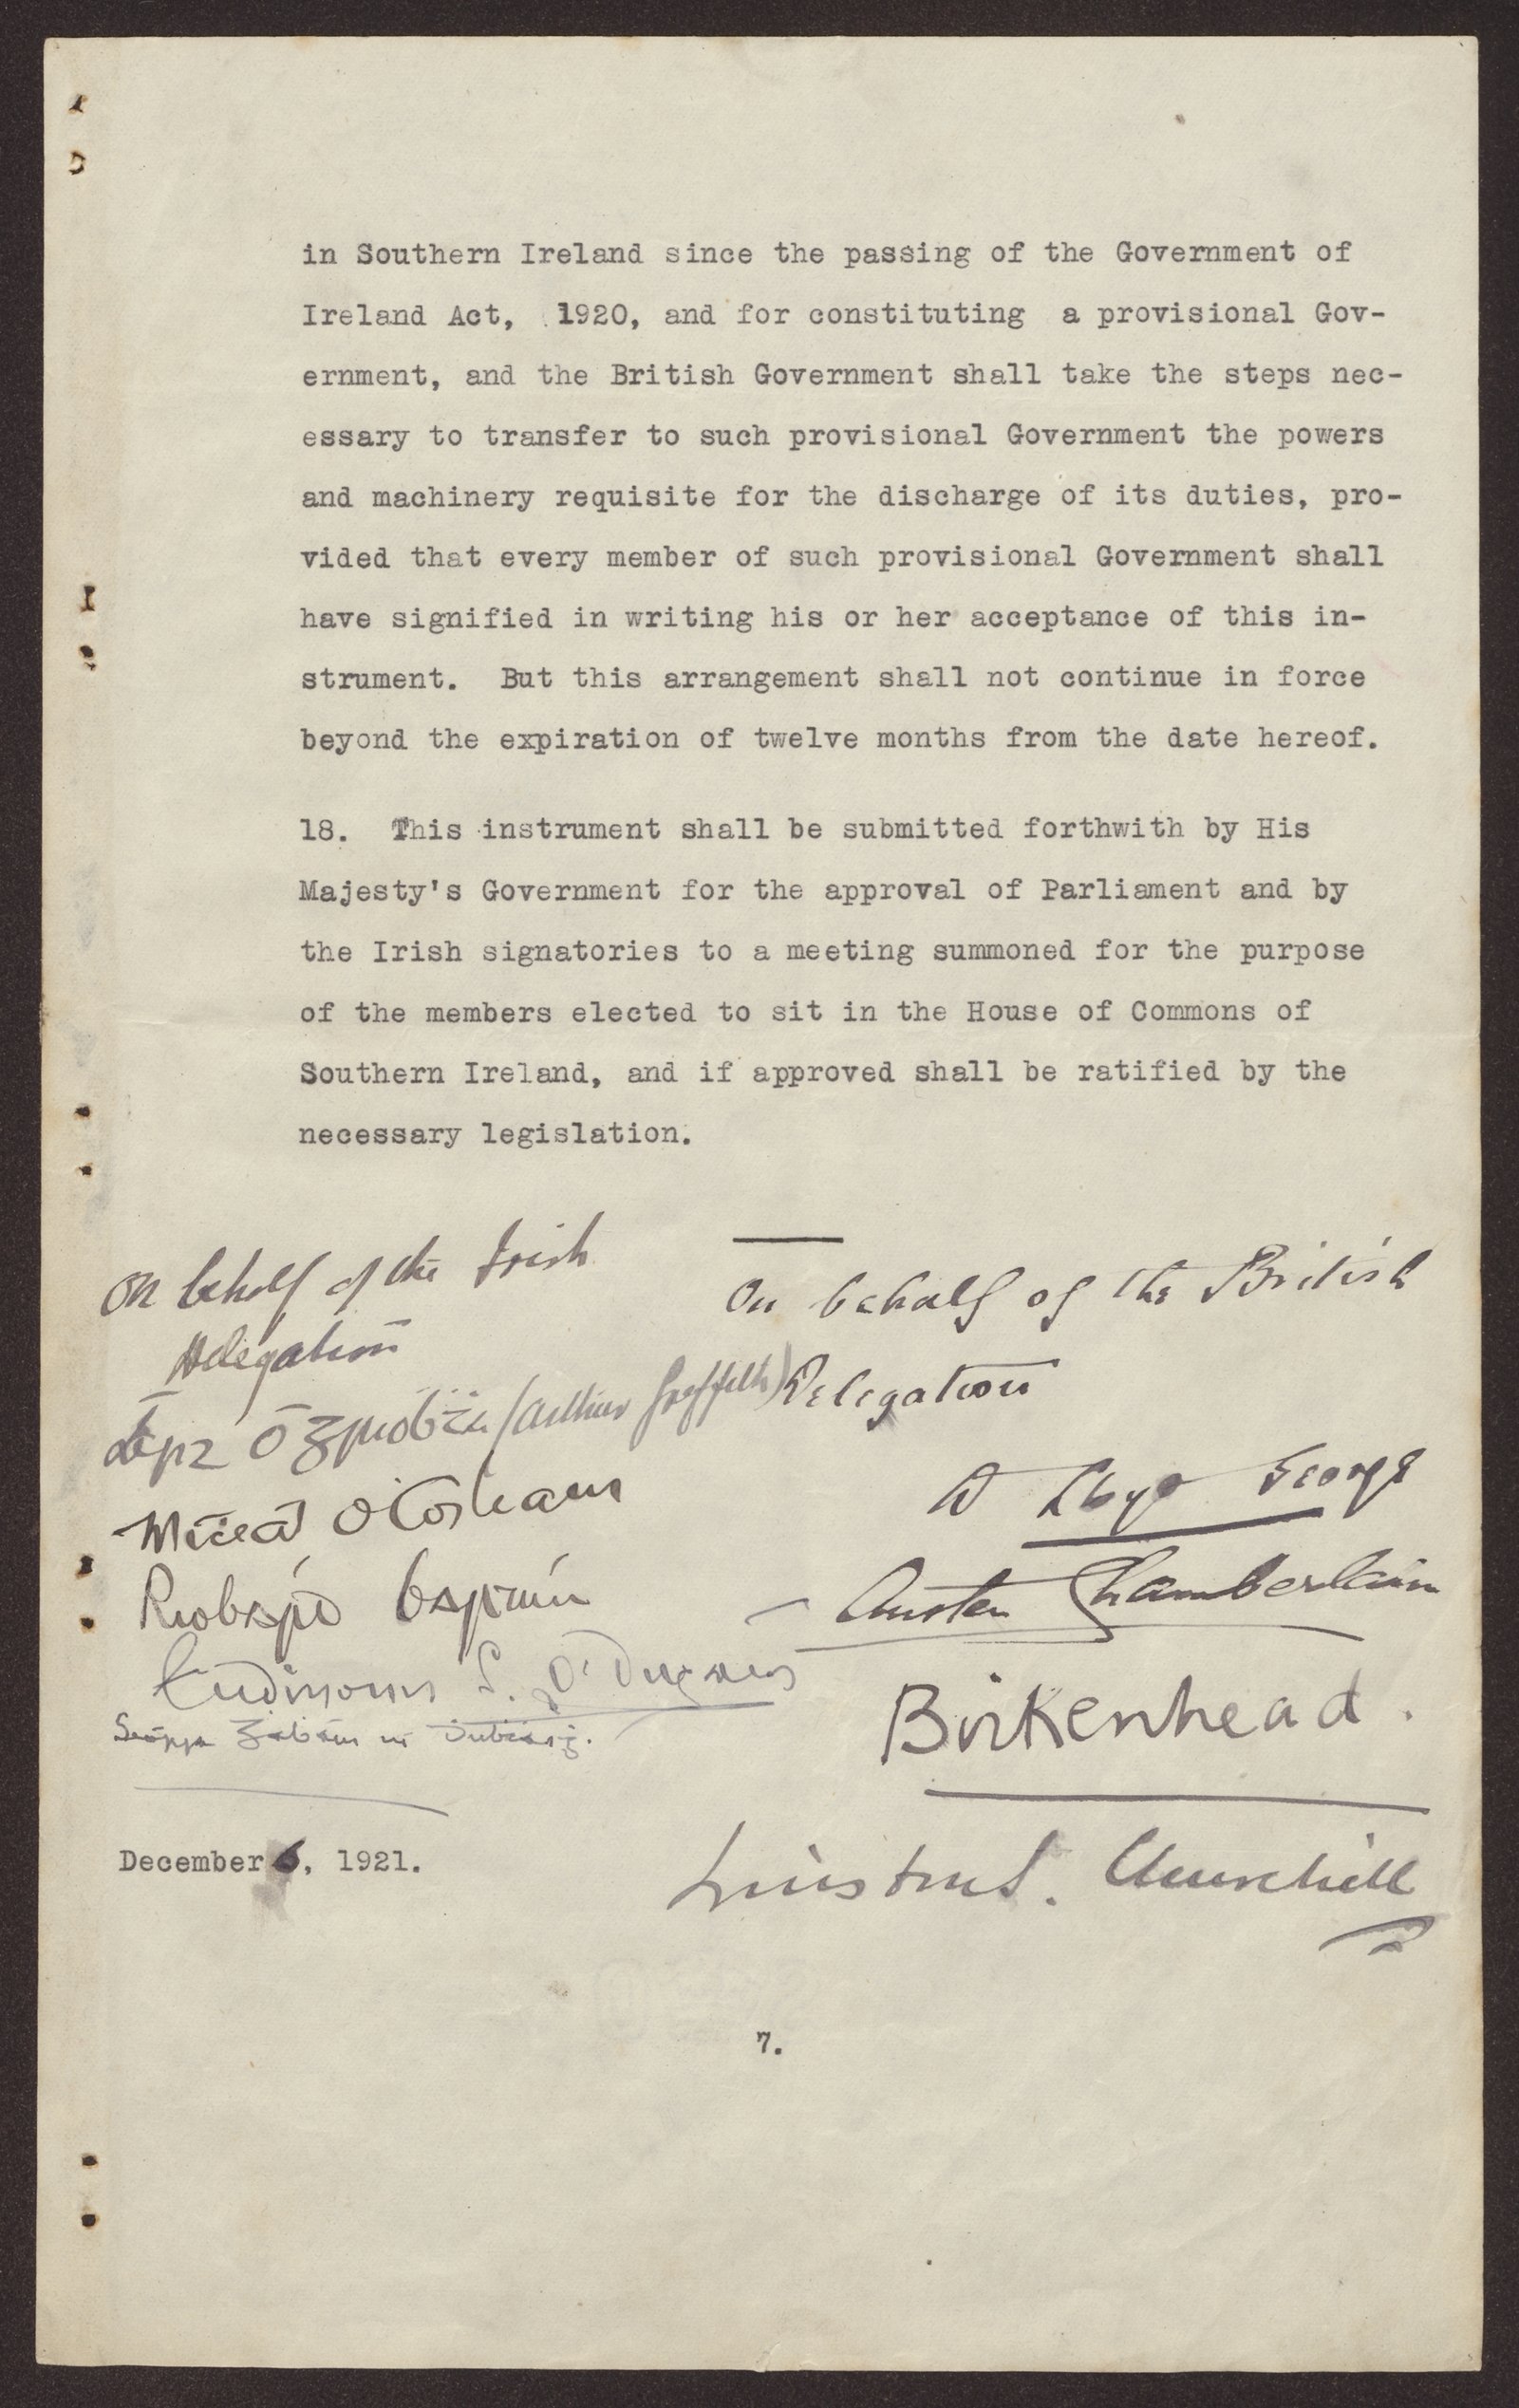 in Southern Ireland since the passing of the Government of
Ireland Act, 1920, and for constituting a provisional Gov-
ernment, and the British Government shall take the steps nec-
essary to transfer to such provisional Government the powers
and machinery requisite for the discharge of its duties, pro-
vided that every member of such provisional Government shall
have signified in writing his or her acceptance of this in-
strument. But this arrangement shall not continue in force
beyond the expiration of twelve months from the date hereof.
18. This instrument shall be submitted forthwith by His
Majesty's Government for the approval of Parliament and by
the Irish signatories to a meeting summoned for the purpose
of the members elected to sit in the House of Commons of
Southern Ireland, and if approved shall be ratified by the
necessary legislation.
On behalf of the Irish
Delegation
Art Ó Gríobhtha (Arthur Griffith)
Mícheál Ó Coileain
Riobárd Bartún
S. Ó Dugain
Seórsa Ghabháin uí Dhubhthaigh.
December 6, 1921.
On behalf of the British
Delegation
D Lloyd George
Austen Chamberlain
Birkenhead.
Winston S. Churchill
7.